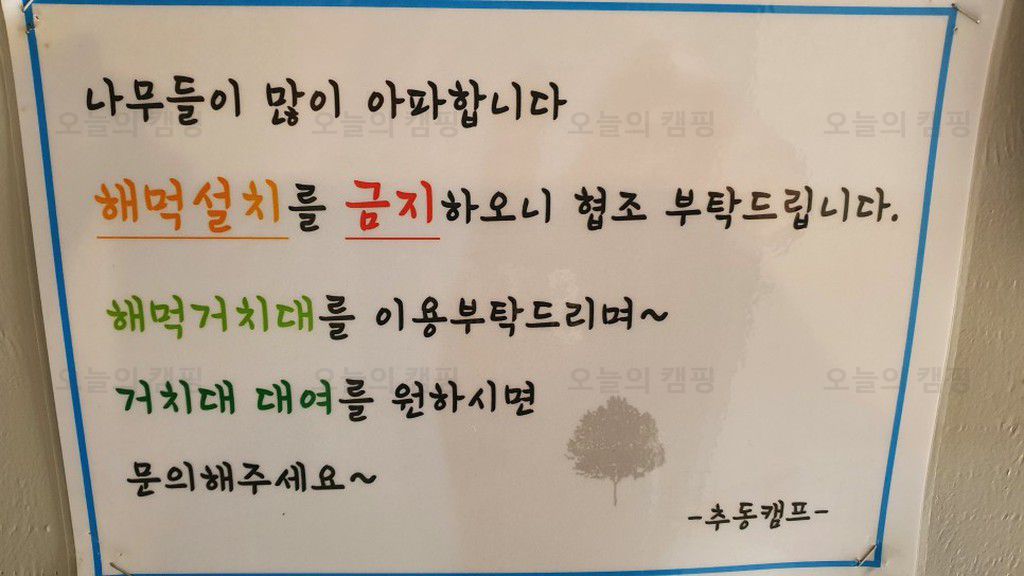 나무들이 많이 아파합니다
해먹설치를 금지하오니 협조 부탁드립니다.
해먹거치대를 이용부탁드리며~
거치대 대여를 원하시면
문의해주세요~
-추동캠프-
오늘의 캠핑 오늘의 캠핑 오늘의 캠핑 오늘의 캠핑
오늘의 캠핑 오늘의 캠핑 오늘의 캠핑 오늘의 캠핑